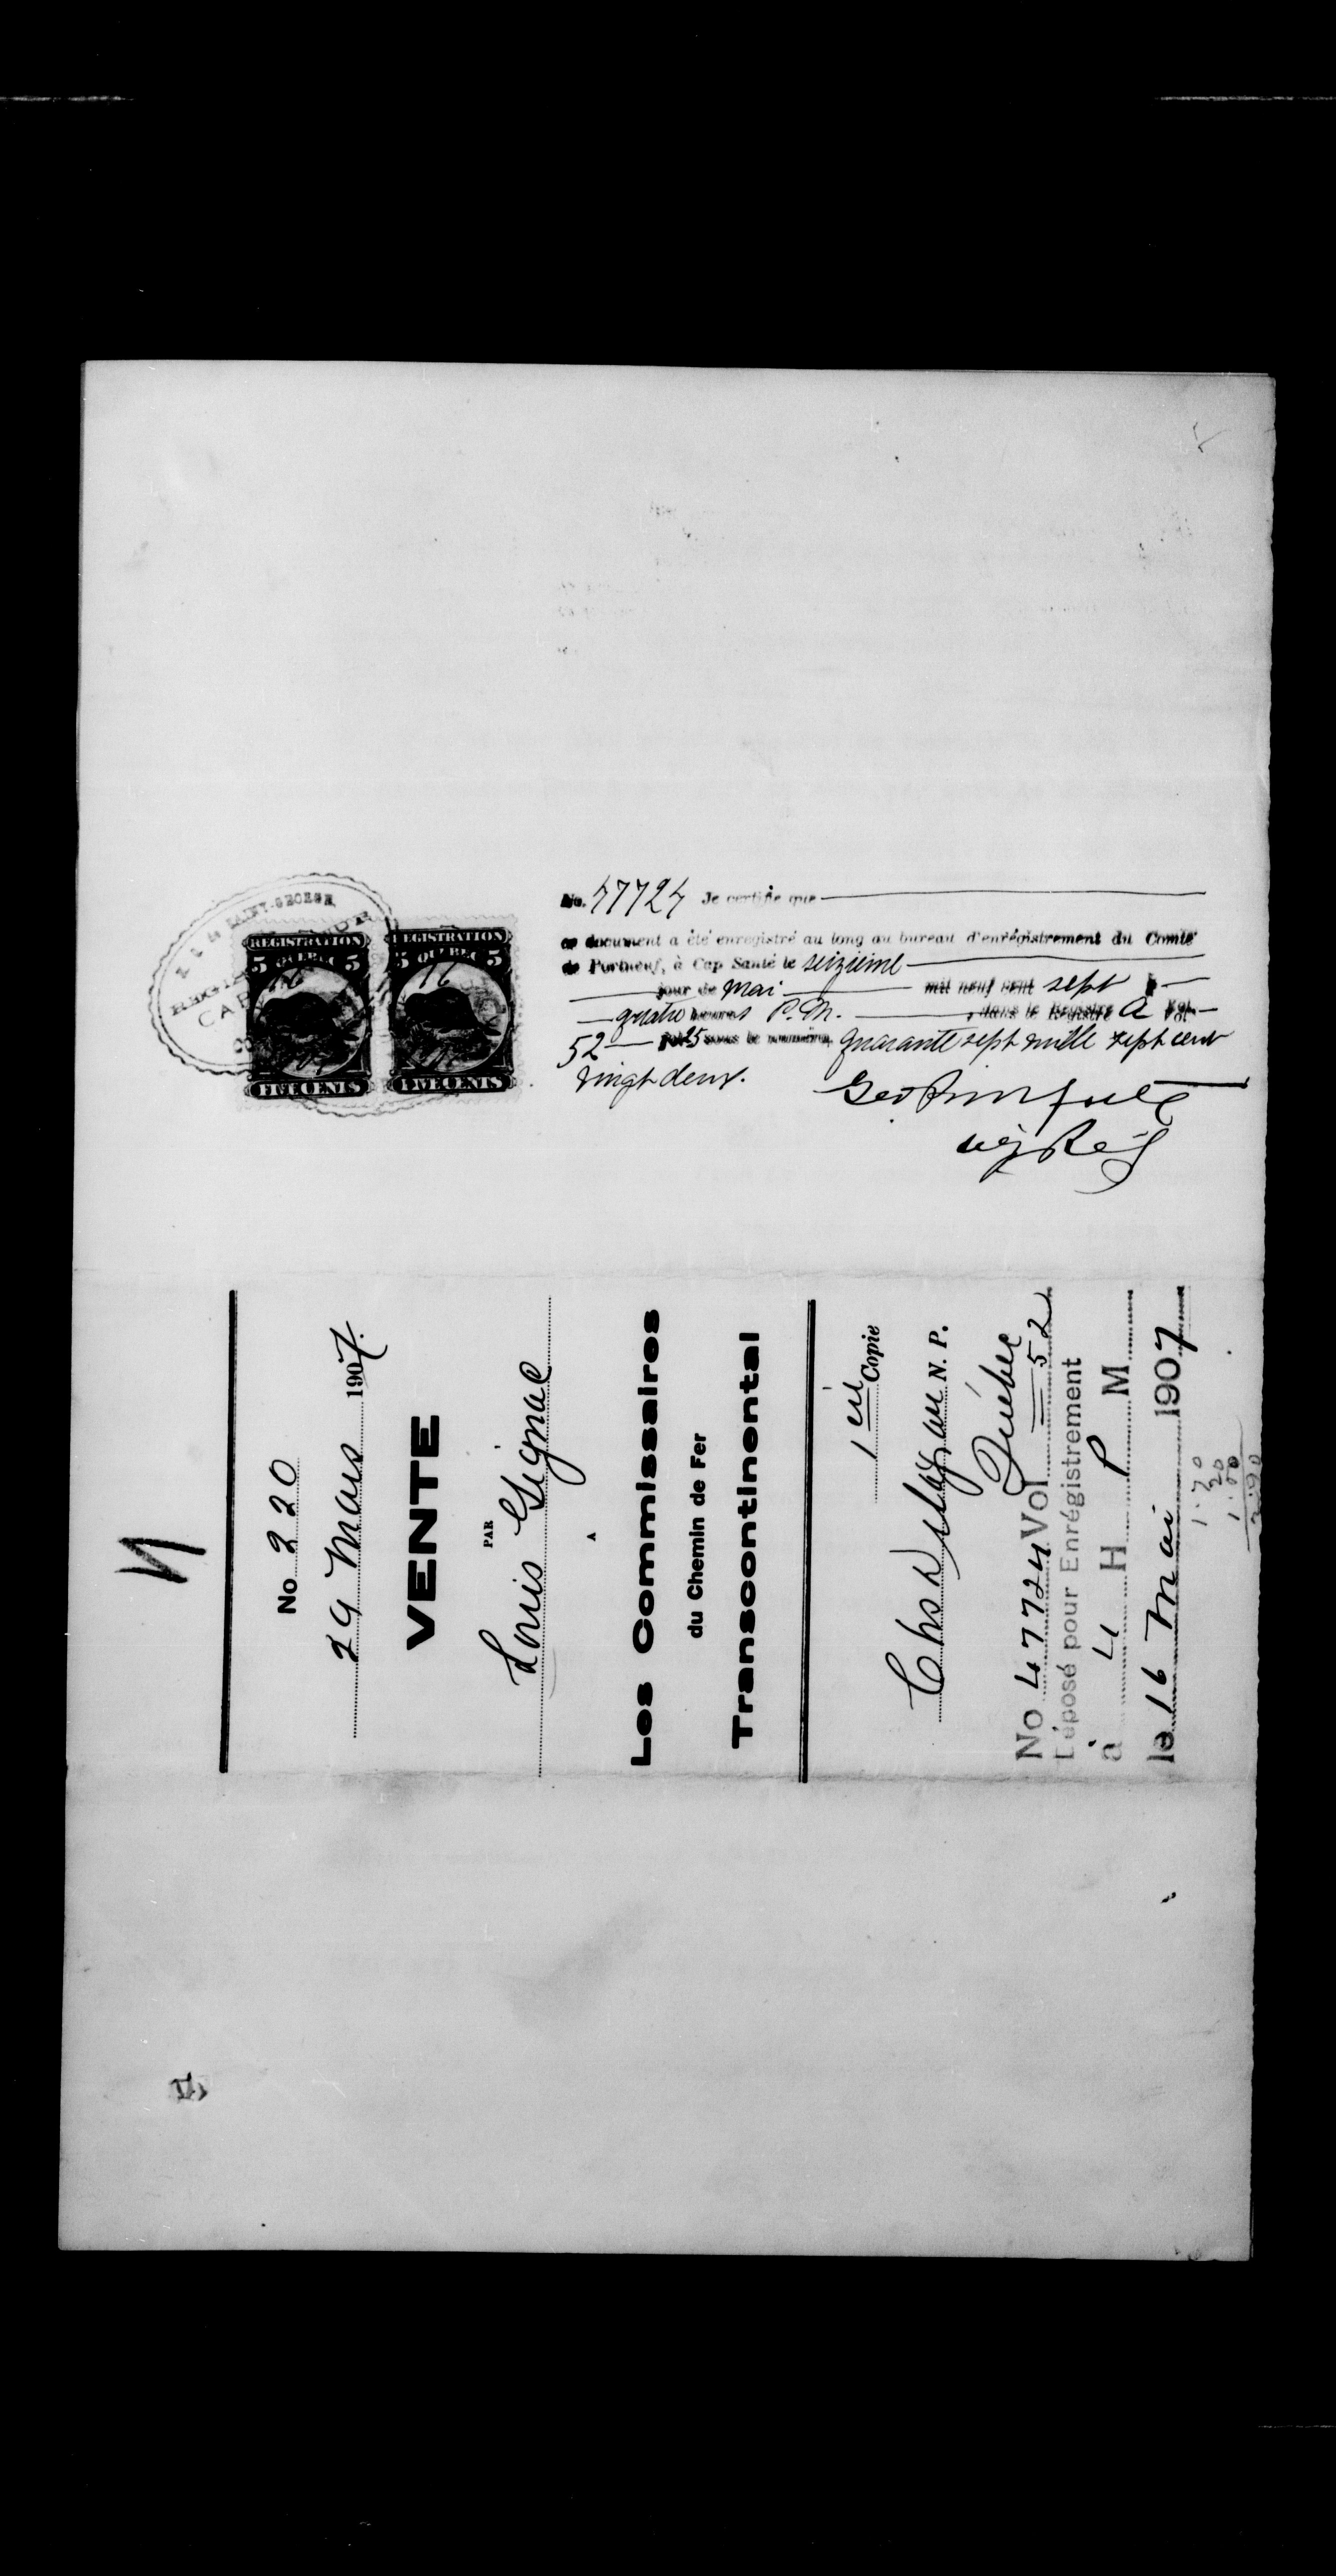 No. 47724 Je certifie que
ce document a été enregistré au long au bureau d'enrégistrement du Comté
de Portneuf, à Cap Santé le seizième
jour de Mai mil neuf cent sept à
quatre heures P. M. , dans le Registre A Vol.
52 fol 25 sous le numéro, quarante sept mille sept cent
vingt deux.
Dép Rég
SAINT-GEORGE
REGISTRATION
5 QUEBEC 5
16
FIVE CENTS
REGISTRATION
5 QUEBEC 5
16
FIVE CENTS
N
No 220
29 Mars 1907.
VENTE
PAR
Louis Gignac
A
Les Commissaires
du Chemin de Fer
Transcontinental
1ère Copie
Chs N. P.
Québec
No 47724 Vol 52
Déposé pour Enrégistrement
à 4 H P M
le 16 Mai 1907
1.70
20
1.00
2.90